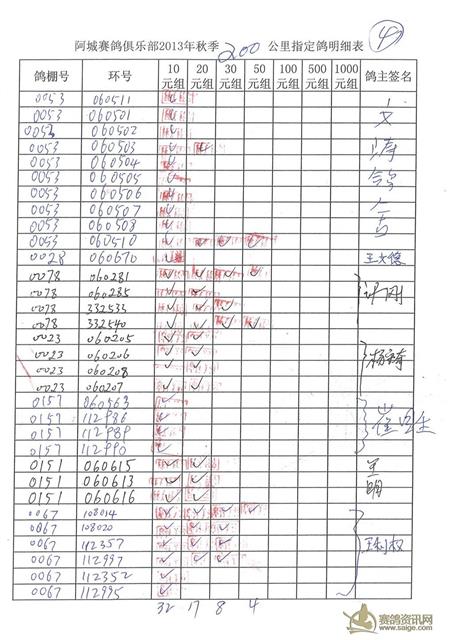 阿城赛鸽俱乐部2013年秋季 200 公里指定鸽明细表 ④
鸽棚号 环号 10元组 20元组 30元组 50元组 100元组 500元组 1000元组 鸽主签名
0053 060511 ✓
0053 060501 ✓
0053 060502 ✓
0053 060503 ✓ ✓
0053 060504 ✓
0053 060505 ✓
0053 060506 ✓
0053 060507 ✓
0053 060508 ✓
0053 060510 ✓ ✓ ✓ ✓
0028 060670 ✓
0078 060281 ✓ ✓ ✓ ✓
0078 060285 ✓ ✓
0078 332533 ✓ ✓ ✓
0078 332540 ✓ ✓ ✓ ✓
0023 060205 ✓ ✓
0023 060206 ✓ ✓
0023 060208 ✓ ✓
0023 060207 ✓ ✓
0157 060563 ✓
0157 112986 ✓
0157 112989 ✓
0157 112990 ✓
0151 060615 ✓ ✓
0151 060613 ✓ ✓
0151 060616 ✓ ✓
王明
0067 108014 ✓ ✓ ✓ ✓
0067 108020 ✓ ✓ ✓
0067 112357 ✓ ✓ ✓
0067 112997 ✓ ✓ ✓
0067 112352 ✓
0067 112995 ✓
32 17 8 4
赛鸽资讯网
www.saige.com